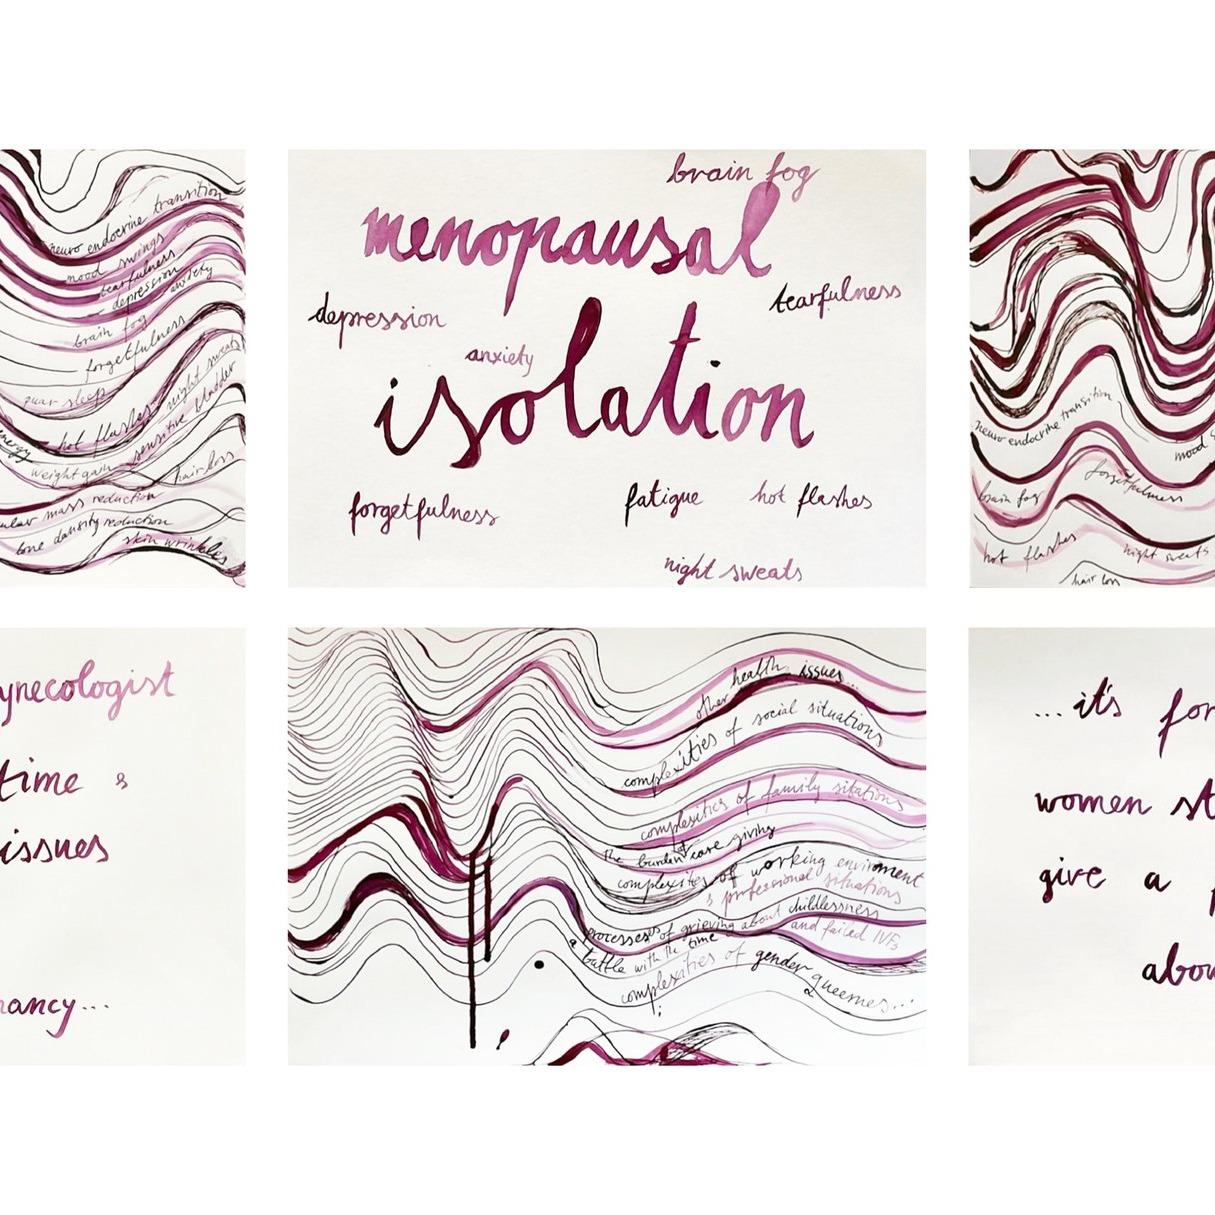 neuro endocrine transition
mood swings
tearfulness
depression anxiety
brain fog
forgetfulness
poor sleep
night sweats
hot flashes
sensitive bladder
weight gain
hair loss
mass reduction
bone dansity reduction
skin wrinkles
brain fog
menopausal
depression
tearfulness
anxiety
isolation
forgetfulness
fatigue
hot flashes
night sweats
neuro endocrine transition
mood s
brain fog
forgetfulness
hot flashes
night sweats
hair loss
ynecologist
time &
issues
nancy...
other health issues...
complexities of social situations
complexities of family sitations
the burden of care giving
complexities of working enviroment
& professional situations
processes of grieving about childlessness
and failed IVFs
a battle with the time
complexities of gender queernes...
...it's for
women st
give a
abou